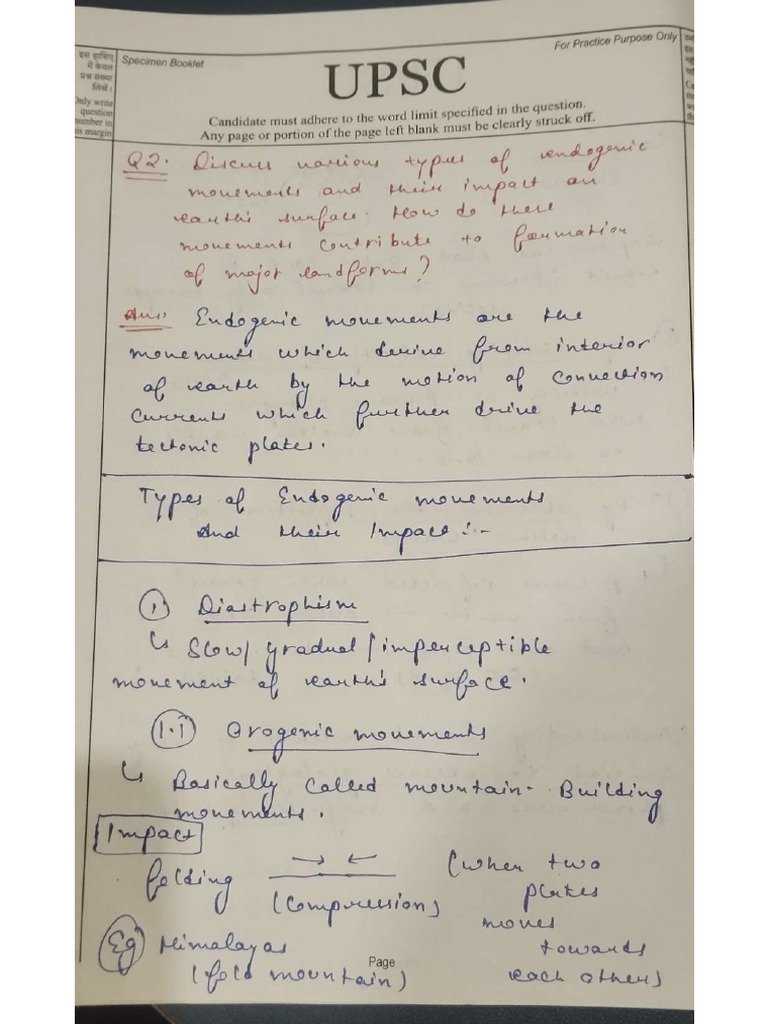 इस हाशिए
में केवल
प्रश्न संख्या
लिखें।
Only write
question
number in
this margin
Specimen Booklet
For Practice Purpose Only
UPSC
Candidate must adhere to the word limit specified in the question.
Any page or portion of the page left blank must be clearly struck off.
Q2. Discuss various types of endogenic
movements and their impact on
earth's surface. How do these
movements contribute to formation
of major landforms?
Ans: Endogenic movements are the
movements which derive from interior
of earth by the motion of convection
currents which further drive the
tectonic plates.
Types of Endogenic movements
And their Impact :-
(1) Diastrophism
↳ Slow/gradual/imperceptible
movement of earth's surface.
(1.1) Orogenic movements
↳ Basically called mountain-Building
movements.
Impact
folding → ← (when two
(Compression) plates
moves
Eg Himalayas towards
(fold mountain) each others)
Page